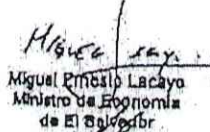 Miguel
Miguel Ernesto Lacayo
Ministro de Economía
de El Salvador